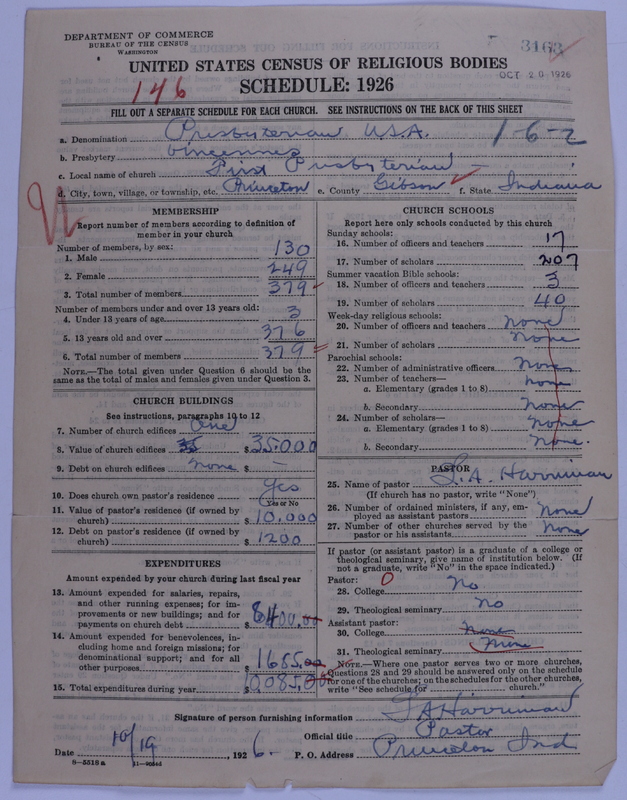 DEPARTMENT OF COMMERCE
BUREAU OF THE CENSUS
WASHINGTON
3163
OCT 20 1926
UNITED STATES CENSUS OF RELIGIOUS BODIES
146
SCHEDULE: 1926
FILL OUT A SEPARATE SCHEDULE FOR EACH CHURCH. SEE INSTRUCTIONS ON THE BACK OF THIS SHEET
a. Denomination Presbyterian U.S.A. 1-6-2
b. Presbytery Vincennes
c. Local name of church First Presbyterian
d. City, town, village, or township, etc. Princeton e. County Gibson f. State Indiana
MEMBERSHIP
Report number of members according to definition of
member in your church
Number of members, by sex:
1. Male 130
2. Female 249
3. Total number of members 379
Number of members under and over 13 years old:
4. Under 13 years of age 3
5. 13 years old and over 376
6. Total number of members 379
NOTE.—The total given under Question 6 should be
same as the total of males and females given under Question 3.
CHURCH BUILDINGS
See instructions, paragraphs 10 to 12
7. Number of church edifices One
8. Value of church edifices 35 $ 35.000
9. Debt on church edifices none $ —
10. Does church own pastor's residence Yes
Yes or No
11. Value of pastor's residence (if owned by
church) $ 10,000
12. Debt on pastor's residence (if owned by
church) $ 1200
EXPENDITURES
Amount expended by your church during last fiscal year
13. Amount expended for salaries, repairs,
and other running expenses; for im-
provements or new buildings; and for
payments on church debt $ 8400.00
14. Amount expended for benevolences, in-
cluding home and foreign missions; for
denominational support; and for all
other purposes $ 1685.00
15. Total expenditures during year $ 10085.00
CHURCH SCHOOLS
Report here only schools conducted by this church
Sunday schools:
16. Number of officers and teachers 17
17. Number of scholars 207
Summer vacation Bible schools:
18. Number of officers and teachers 3
19. Number of scholars 40
Week-day religious schools:
20. Number of officers and teachers none
21. Number of scholars none
Parochial schools:
22. Number of administrative officers none
23. Number of teachers—
a. Elementary (grades 1 to 8) none
b. Secondary none
24. Number of scholars—
a. Elementary (grades 1 to 8) none
b. Secondary none.
PASTOR
25. Name of pastor L. A. Harriman
(If church has no pastor, write "None")
26. Number of ordained ministers, if any, em-
ployed as assistant pastors none
27. Number of other churches served by the
pastor or his assistants none
If pastor (or assistant pastor) is a graduate of a college or
theological seminary, give name of institution below. (If
not a graduate, write "No" in the space indicated.)
Pastor: 0
28. College No
29. Theological seminary No
Assistant pastor:
30. College None
31. Theological seminary None
NOTE.—Where one pastor serves two or more churches,
Questions 28 and 29 should be answered only on the schedule
for one of the churches; on the schedules for the other churches,
write "See schedule for church."
Signature of person furnishing information L A Harriman
Official title Pastor
Date 10/19, 1926. P. O. Address Princeton Ind
8—5518 a